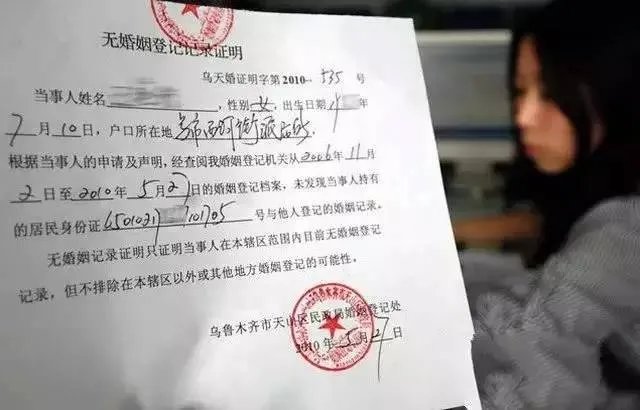 无婚姻登记记录证明
乌天婚证明字第2010-535号
当事人姓名 ,性别女,出生日期 年
7月10日,户口所在地 市西河街派出所
根据当事人的申请及声明,经查阅我婚姻登记机关从2006年11月
2日至2010年5月27日的婚姻登记档案,未发现当事人持有
的居民身份证 号与他人登记的婚姻记录。
无婚姻记录证明只证明当事人在本辖区范围内目前无婚姻登记
记录,但不排除在本辖区以外或其他地方婚姻登记的可能性。
乌鲁木齐市天山区民政局婚姻登记处
2010年5月27日